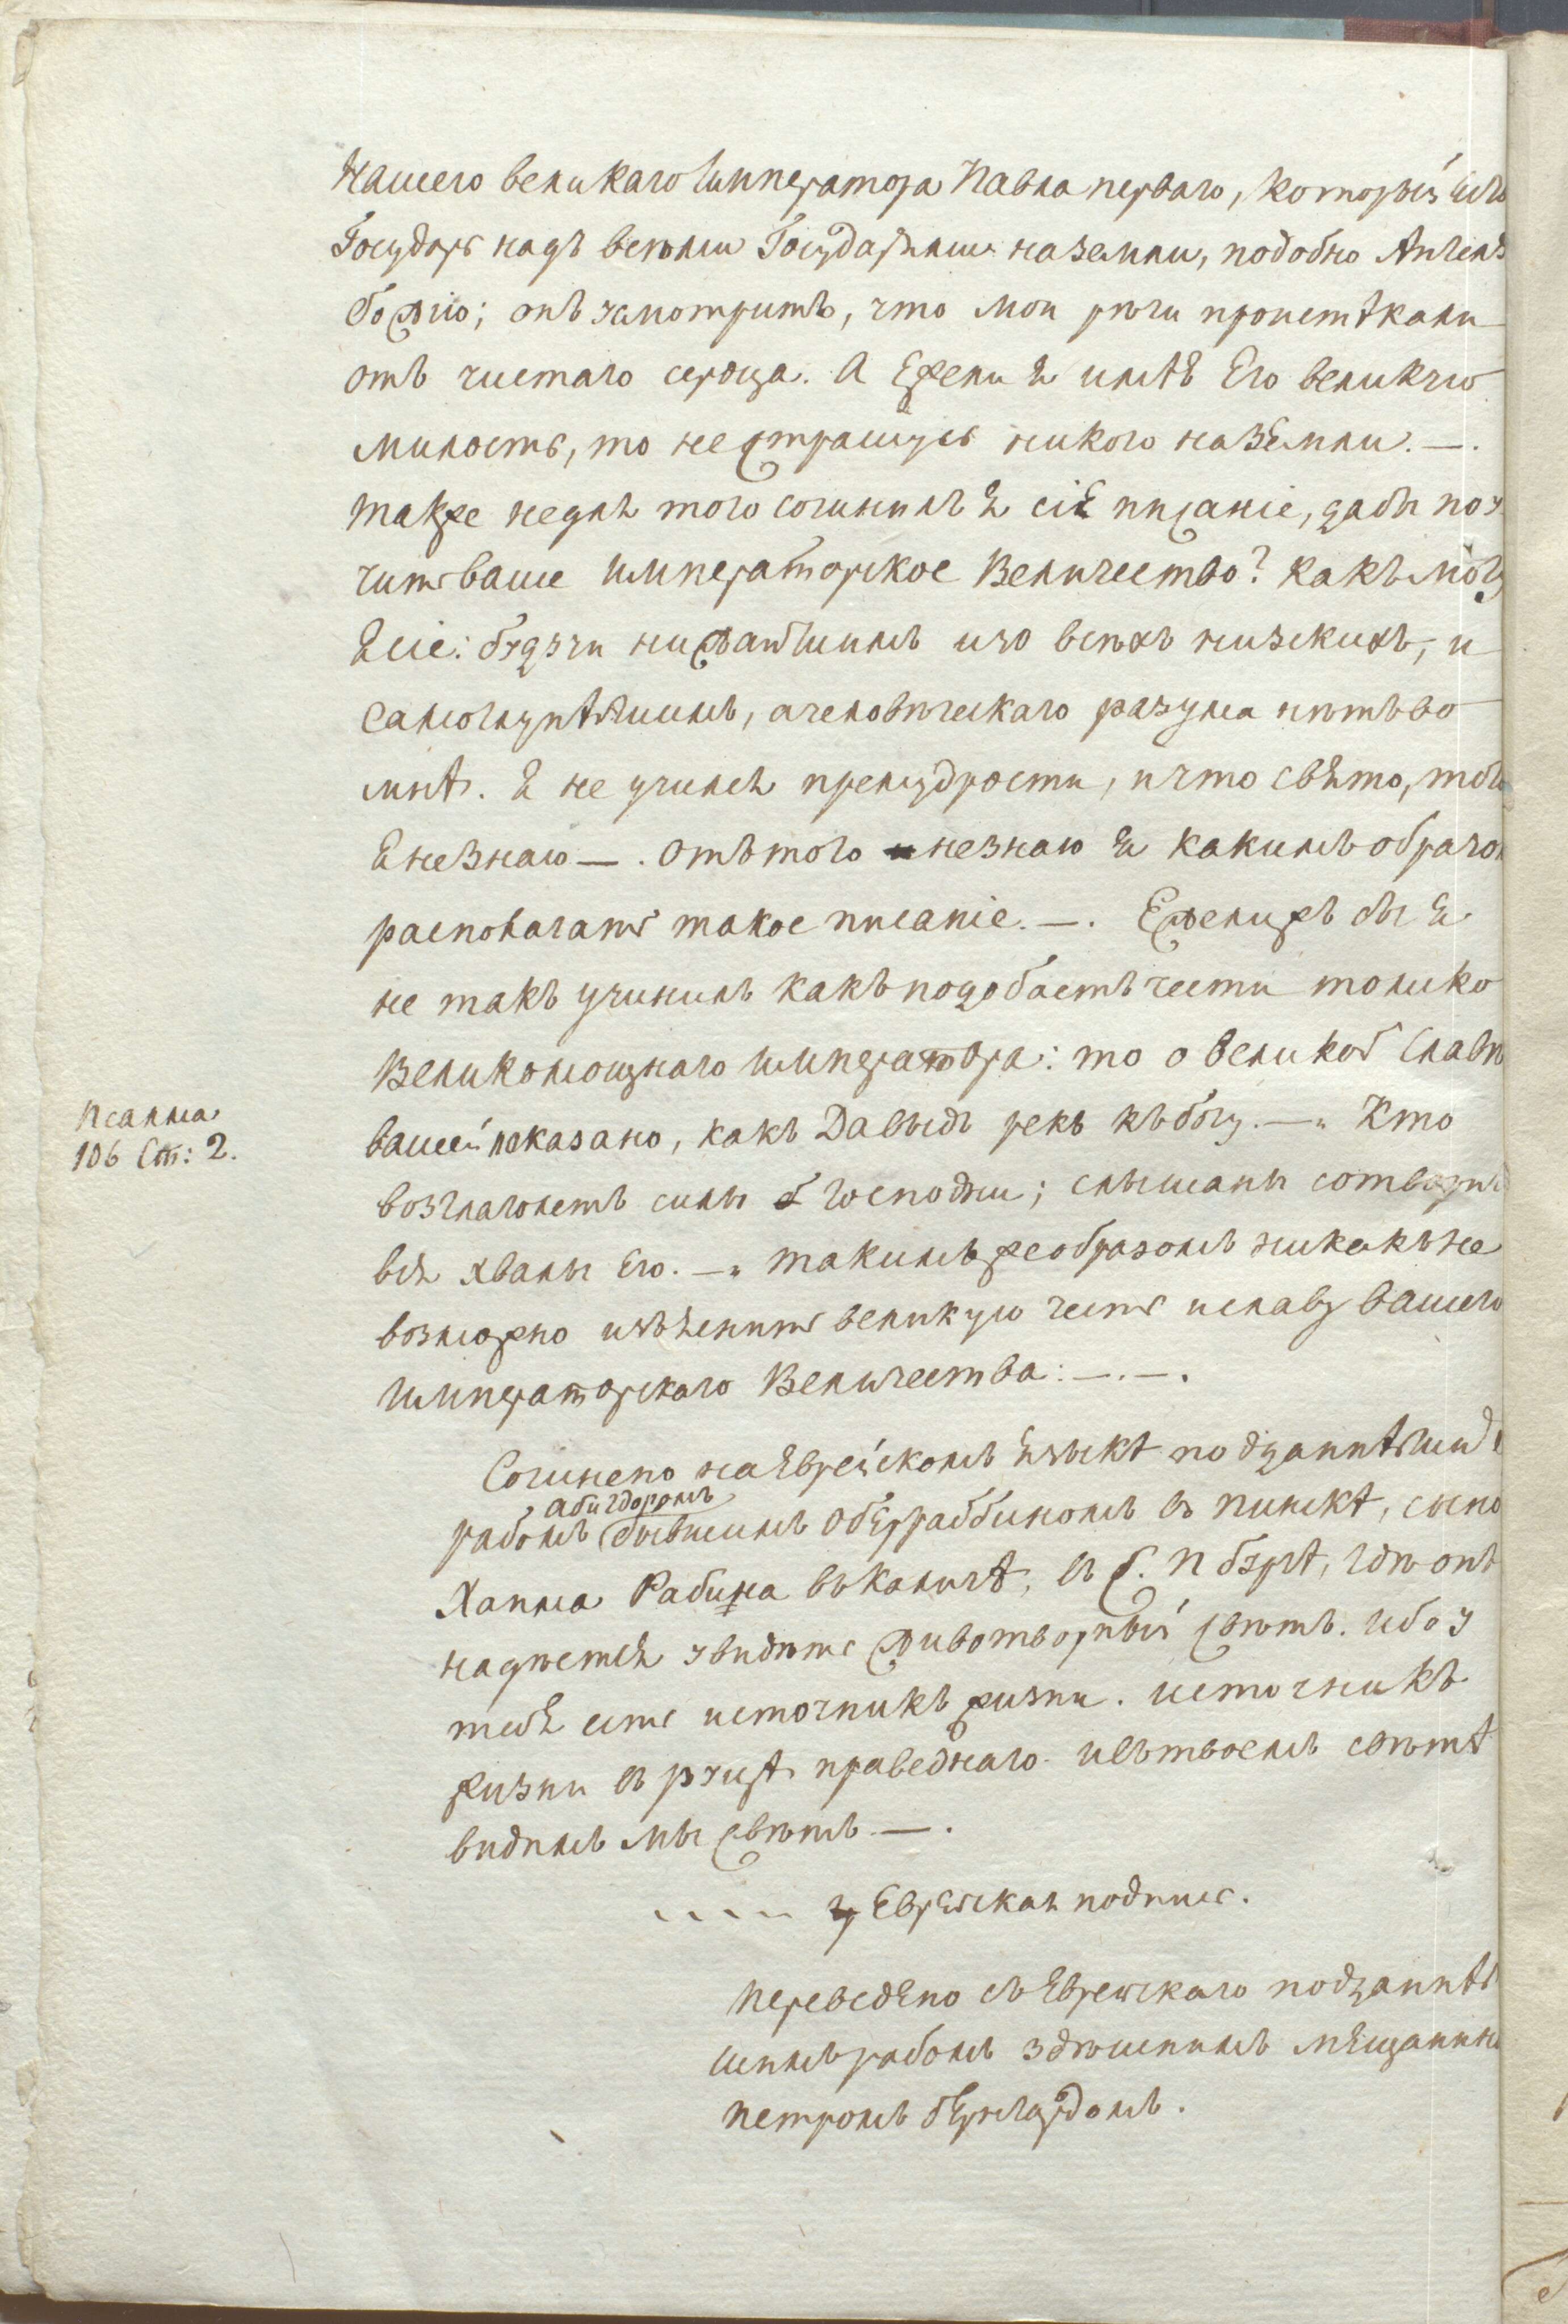 Нашего великаго Императора Павла перваго, который есть
Государь надъ всѣми Государями на земли, подобно Ангелу
божію; онъ усмотритъ, что мои рѣчи проистѣкали
отъ чистаго сердца. А Ежели я имѣя Его великую
милость, то не страшусь никого на земли. —.
также не для того сочинилъ я сіе писаніе, дабы поу
чить ваше Императорское Величество? какъ могу
я сіе: будучи нижайшимъ изо всѣхъ низскихъ, и
самоглупѣйшимъ, а человѣческаго разума нѣтъ во
мнѣ. я не учился премудрости, и что свято, того
я незнаю —. отъ того незнаю я какимъ образом
располагать такое писаніе. —. Ежелижъ бы я
не такъ учинилъ какъ подобаетъ чести толико
Великомощнаго Императора: то о великой славѣ
вашей показано, какъ Давыдъ рекъ къ богу. —„ Кто
возглаголетъ силы Господни; слышаны сотворитъ
вся хвалы Его. —„ такимъ же образомъ никакъ не
возможно изъяснить великую честь и славу вашего
Императорскаго Величества: —.—.
Псалма
106 Ст: 2.
Сочинено на Яврейскомъ языкѣ подданнѣйши
абигдоромъ
рабомъ бывшимъ оберраббиномъ въ пинскѣ, сыно
Хаима Рабина въ
надѣется увидѣть животворный свѣтъ. ибо у
тебя есть источникъ жизни. источникъ
жизни въ праведнаго. и въ твоемъ свѣтѣ
видимъ мы свѣтъ —.
Еврейская подпись.
переведено съ Яврейскаго подданнѣй
шимъ рабомъ здѣшнимъ мѣщанино
петромъ